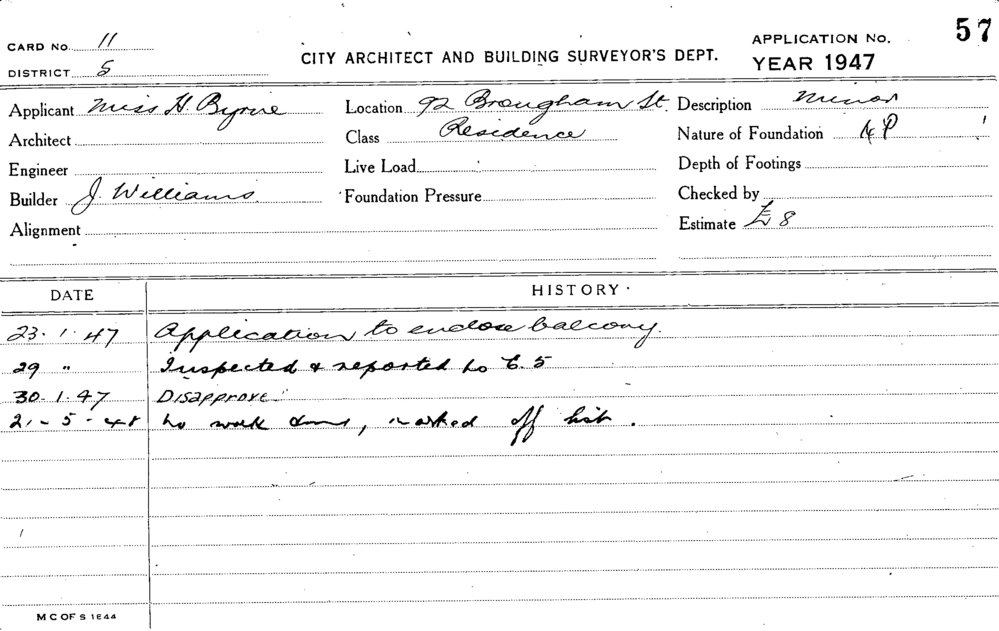 CARD No. 11
DISTRICT 5
CITY ARCHITECT AND BUILDING SURVEYOR'S DEPT.
APPLICATION No. 57
YEAR 1947
Applicant Miss H. Byrne Location 92 Brougham St. Description Minor
Architect Class Residence Nature of Foundation
Engineer Live Load Depth of Footings
Builder J. Williams. Foundation Pressure Checked by
Alignment Estimate £8
DATE HISTORY
23.1.47 Application to enclose balcony.
29 " Inspected & reported to E.5
30.1.47 Disapprove
21-5-48 No work done, marked off list.
M C OF S 1644